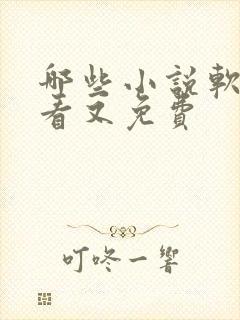 哪些小說軟
看又免費
叮咚一響